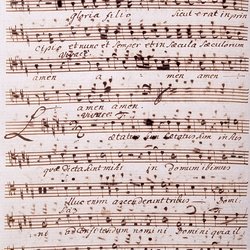 gloria filio Sicut erat in prin
cipio et nunc et Semper et in Sæcula Sæculorum
amen a men
amen amen.
Lætatus sum Lætatus sum in his
quæ dicta sunt mihi in Domum ibimus
illuc enim ascenderunt tribus Domi
ni ad Confitendum nomini Domini quia il